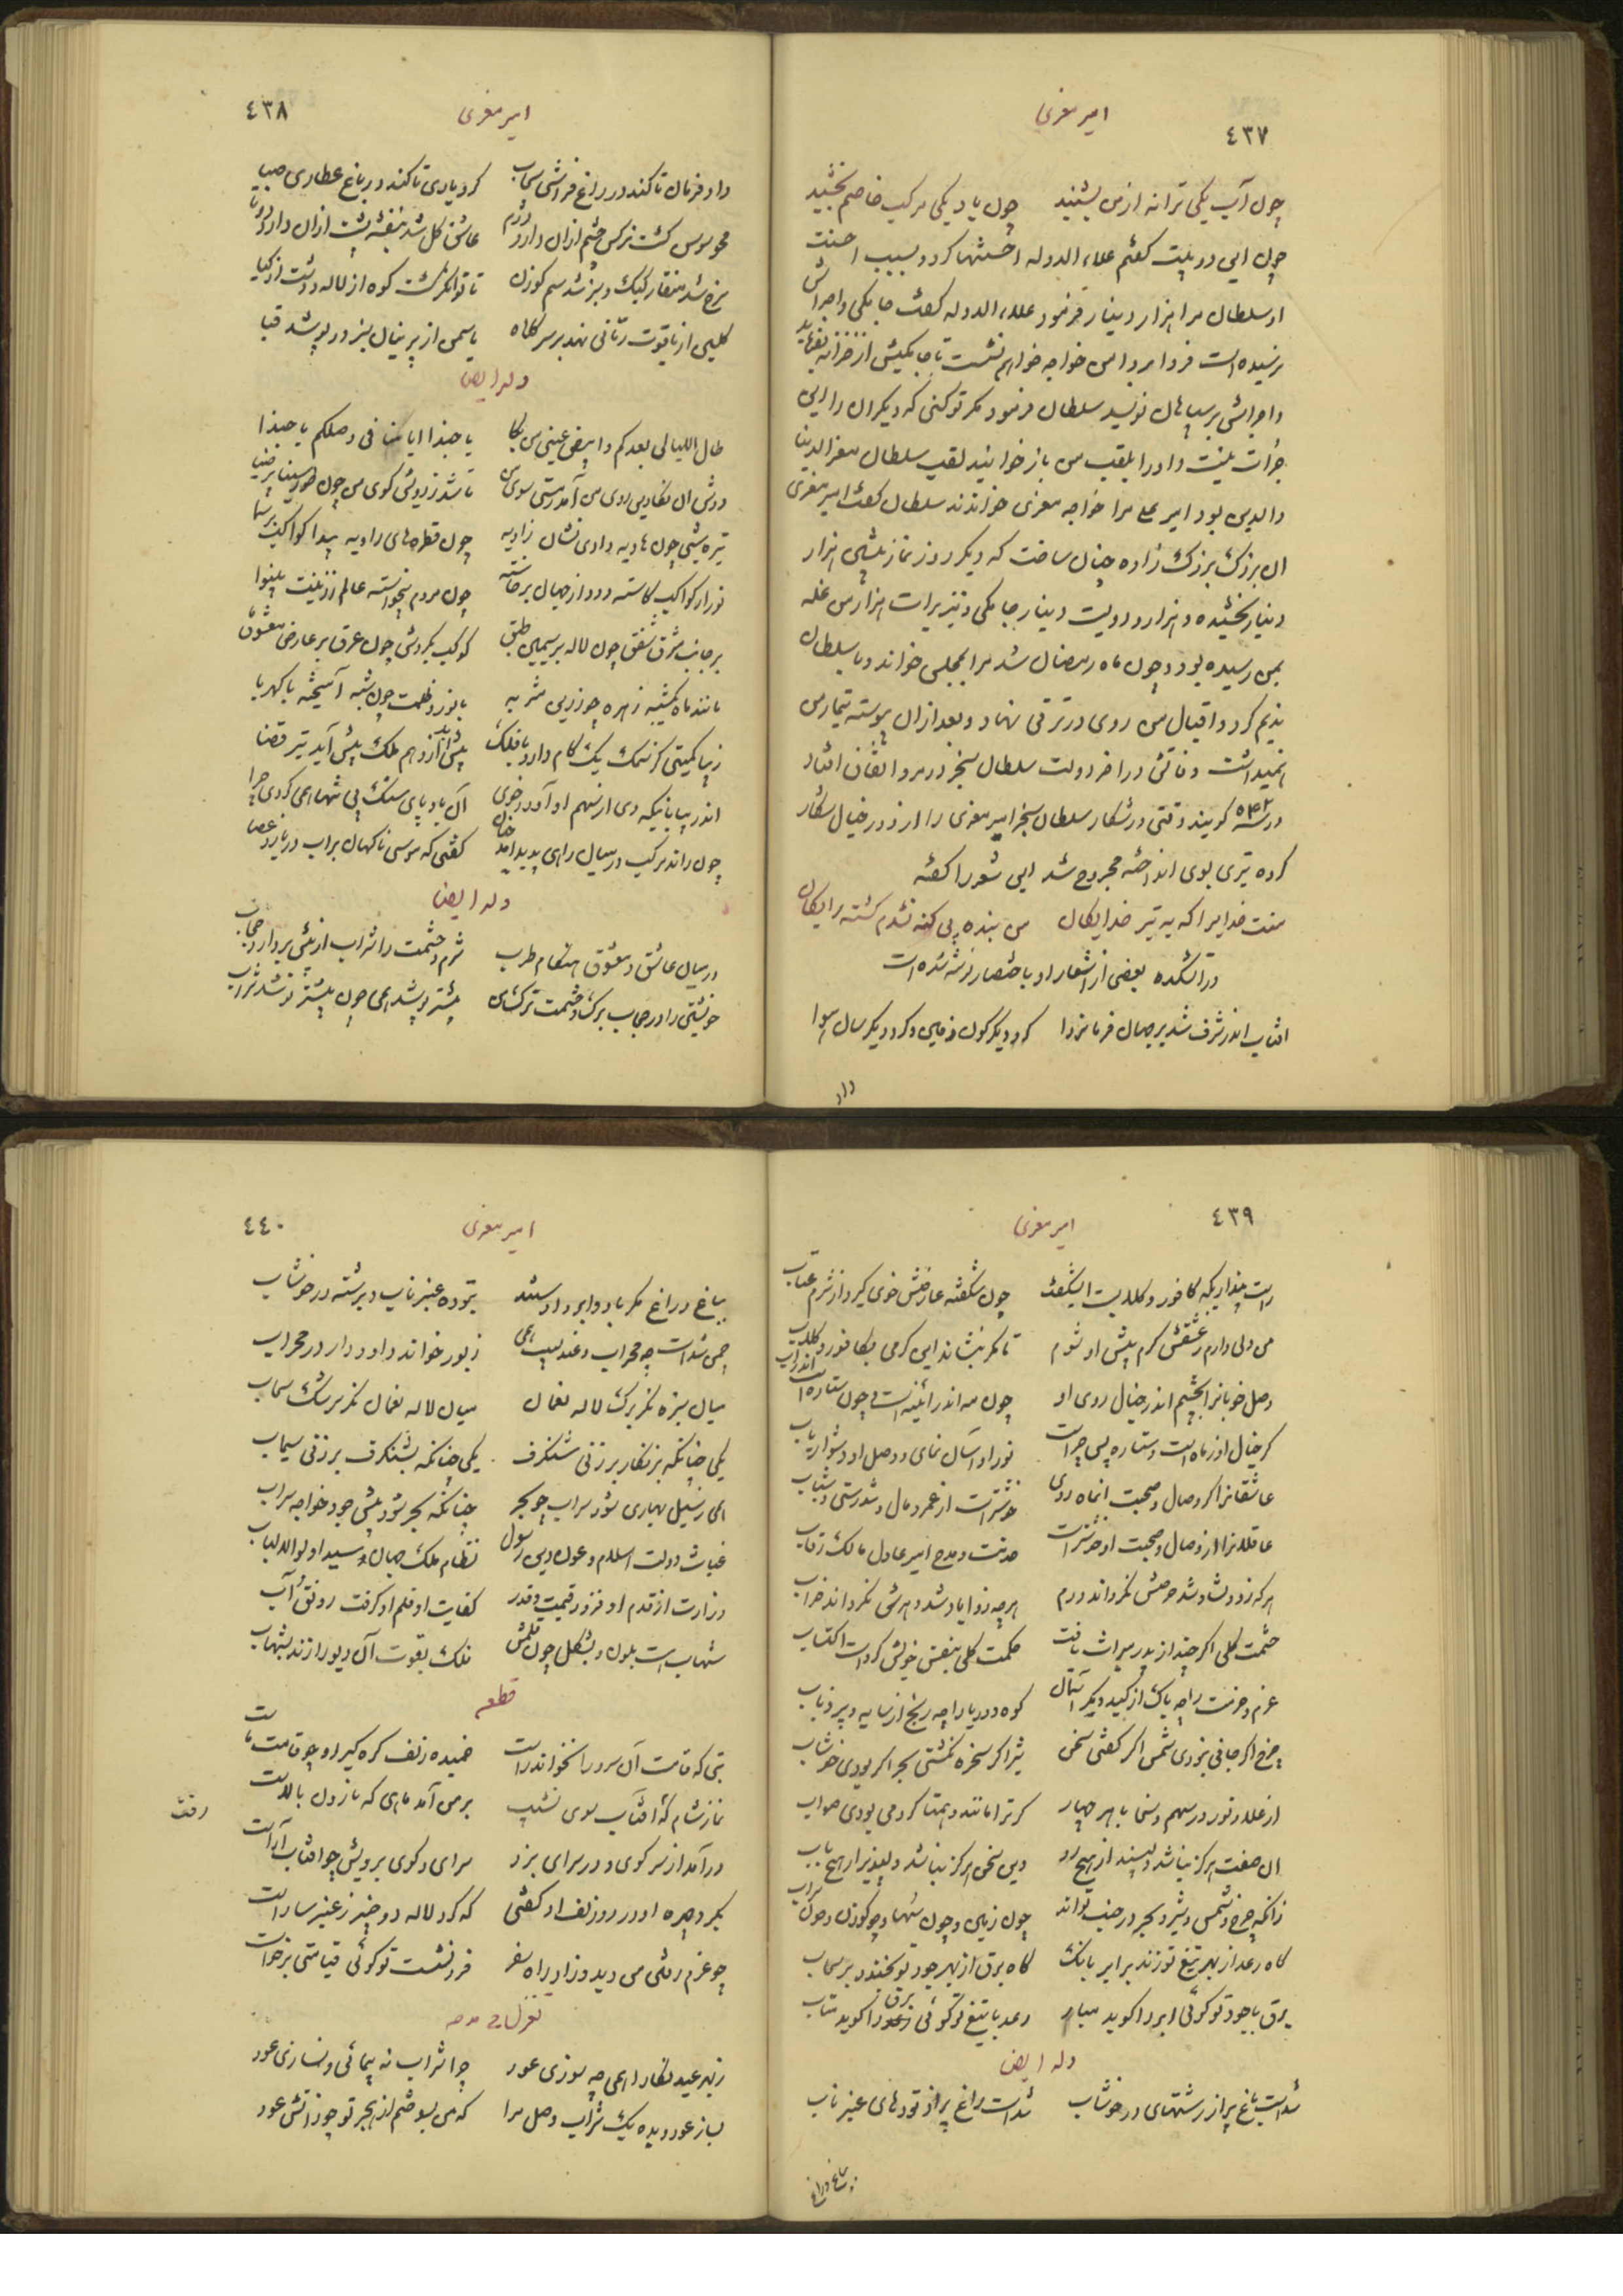 امیر معزی
٤٣٧
چون آب یکی ترانه از من بشنید چون باد یکی مرکب خاصم بخشید
چون این دو بیت گفتم علاء الدوله احسنتها کرد و بسبب احسنت
او سلطان مرا هزار دینار فرمود علاء الدوله گفت جامکی و اجراش
نرسیده است فردا بر دامن خواجه خواهم نشست تا جامکیش از خزانه بفرماید
و اجرایش بر سپاهان نویسد سلطان فرمود مگر تو کنی که دیگران را این
جرات نیست و او را بلقب من باز خوانید لقب سلطان معز الدنیا
والدین بود امیر علی مرا خواجه معزی خواندند سلطان گفت امیر معزی
آن بزرگ بزرگ زاده چنان ساخت که دیگر روز نماز پیشین هزار
دینار بخشیده و هزار و دویست دینار جامکی و نیز برات هزار من غله
بمن رسیده بود و چون ماه رمضان شد مرا بمجلس خواند و با سلطان
ندیم کرد و اقبال من روی در ترقی نهاد و بعد از آن پیوسته تیمار من
همیداشت وفاتش در آخر دولت سلطان سنجر در مرو اتفاق افتاد
در سنه ٥٤٢ گویند وقتی در شکار سلطان سنجر امیر معزی را از دور خیال شکار
کرده تیری بوی انداخته مجروح شد این شعر را گفته
منت خدایرا که به تیر خدایگان من بنده بی گنه نشدم کشته رایگان
در آتشکده بعضی از اشعار او باختصار نوشته شده است
آفتاب اندر شرف شد بر جهان فرمانروا کرد دیگرگون زمین و کرد دیگر سان هوا
داد
امیر معزی
٤٣٨
داد فرمان تا کند در راغ فراشی سحاب کرد یاری تا کند در باغ عطاری صبا
محو سوسن گشت نرگس چشم از آن دارد دژم عاشق گل شد بنفشه پشت از آن دارد دوتا
سرخ شد منقار کبک و سبز شد سم گوزن تا توانگر گشت کوه از لاله و دشت از گیا
گلبن از یاقوت رمانی نهد بر سر کلاه یاسمن از پرنیان سبز در پوشد قبا
وله ایضا
طال اللیالی بعدکم وابیض عینی من بکا یا حبذا ایامنا فی وصلکم یا حبذا
دوش آن نگار من روی من آمد بستی سوی من تا شد ز رویش کوی من چون طور سینا پر ضیا
تیره شبی چون هاویه دادی نشان زاویه چون قطره‌های راویه پیدا کواکب بر سما
نور از کواکب کاسته دود از جهان برخاسته چون مردم نخواسته عالم از زینت بینوا
بر جانب مشرق شفق چون لاله بر سیمین طبق کوکب بگردش چون عرق بر عارض معشوق ما
مانند ماه یکشبه زهره چو زرین مشربه با نور و ظلمت چون شبه آمیخته با کهربا
زیبا کمیتی کز سمک یک گام دارد تا فلک پیش آید از وهم ملک پیش آید از تیر قضا
اندر بیابانیکه دی از سهم او آورد خوی آن باد پای سنگ پی تنها همی کردی چرا
چون راند مرکب در میان راهی پدید آمد چنان گفتی که موسی ناگهان بر آب دریا زد عصا
وله ایضا
در میان عاشق و معشوق هنگام طرب شرم و حشمت را شراب از پیش بردارد حجاب
خویشتن را در حجاب برگ و حشمت ترک من بیشتر پوشد همی چون بیشتر نوشد شراب
امیر معزی
٤٣٩
راست پنداریکه کافور و گلابست ایشگفت چون شکفته عارضش خوی گیرد از شرم عتاب
من دلی دارم ز عشقش گرم پیش او شوم تا مگر بنشاند این گرمی بکافور و گلاب
وصل خوبانرا بچشم اندر خیال روی او چون مه اندر آینه است و چون ستاره است اندر آب
گر خیال او ز ماه است و ستاره پس چراست نور او آسان نمای و وصل او دشوار یاب
عاشقانرا گر وصال و صحبت آنماه روی خوشتر است از عمر و مال و تندرستی و شباب
عاقلانرا از وصال و صحبت او خوشتر است خدمت و مدح امیر عادل مالک رقاب
هر که زو دلشاد شد حرصش نگرداند دژم هر چه زو آباد شد دهرش نگرداند خراب
حشمت کلی اگر چند از پدر میراث یافت حکمت کلی بنفس خویش کرد است اکتساب
عزم و حزمت را چه باک از کید دیگر آسمان کوه و دریا را چه رنج از سایه و پر ذباب
چرخ اگر جانی بزدی شمس اگر گفتی سخن شیر اگر سخره نگشتی بحر اگر بودی خوشاب
از علا و نور و در سهم و سخا با هر چهار گر ترا مانند و همتا کردمی بودی صواب
آن صفت هرگز نباشد دلپسند از هیچ رو وین سخن هرگز نباشد دلپذیر از هیچ باب
زانکه چرخ و شمس و شیر و بحر در جنب تواند چون زمین و چون سها و چو گوزن و چون سراب
گاه رعد از بهر تیغ تو زند بر ابر بانگ گاه برق از بهر جود تو بخندد بر سحاب
برق با جود تو گوئی ابر را گوید مبار رعد با تیغ تو گوئی برق را گوید متاب
وله ایضا
شد است باغ پر از رشتهای در خوشاب شد است راغ پر از توده‌های عنبر ناب
امیر معزی
٤٤٠
بباغ و راغ مگر باد و ابر داد ستند بتوده عنبر ناب و برشته در خوشاب
چمن شد است چو محراب و عندلیب همی زبور خواند داود وار در محراب
میان سبزه نگر برگ لاله نعمان میان لاله نعمان نگر سرشک سحاب
یکی چنانکه بزنگار بر زنی شنگرف یکی چنانکه بشنگرف بر زنی سیماب
همی ز سیل بهاری شود سراب چو بحر چنانکه بحر شود پیش جود خواجه سراب
غیاث دولت اسلام و عون دین رسول نظام ملک جهان و سید اولوالالباب
وزارت از قدم او فزود قیمت و قدر کفایت از قلم او گرفت رونق و آب
شهاب است بلون و بشکل چون قلمش فلک بقوت آن دیو را زند بشهاب
قطعه
بتی که قامت آن سرو را نخواند راست خمیده زلف گره گیر او چو قامت ماست
نماز شام که آفتاب سوی نشیب بر من آمد ماهی که ناز دل بالاست
رفت
در آمد از سر کوی و در سرای بزد سرای و کوی برویش چو آفتاب آراست
بگرد چهره او در دو زلف او گفتی که گرد لاله دو خنبر ز عنبر ساراست
چو عزم رفتن من دید و زاد راه سفر فرو نشست تو گوئی قیامتی برخاست
تغزل در مدحه
ز بهر عید نگارا همی چه سوزی عود چرا شراب نه پیمائی و نسازی عود
بساز عود و بده یک شراب وصل مرا که من بسوختم از هجر تو چو ز آتش عود